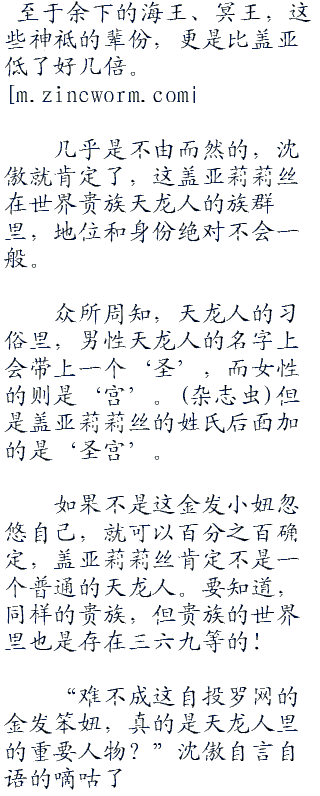 至于余下的海王、冥王，这
些神祗的辈份，更是比盖亚
低了好几倍。
[m.zincworm.com|
几乎是不由而然的，沈
傲就肯定了，这盖亚莉莉丝
在世界贵族天龙人的族群
里，地位和身份绝对不会一
般。
众所周知，天龙人的习
俗里，男性天龙人的名字上
会带上一个‘圣’，而女性
的则是‘宫’。(杂志虫)但
是盖亚莉莉丝的姓氏后面加
的是‘圣宫’。
如果不是这金发小妞忽
悠自己，就可以百分之百确
定，盖亚莉莉丝肯定不是一
个普通的天龙人。要知道，
同样的贵族，但贵族的世界
里也是存在三六九等的！
“难不成这自投罗网的
金发笨妞，真的是天龙人里
的重要人物？”沈傲自言自
语的嘀咕了